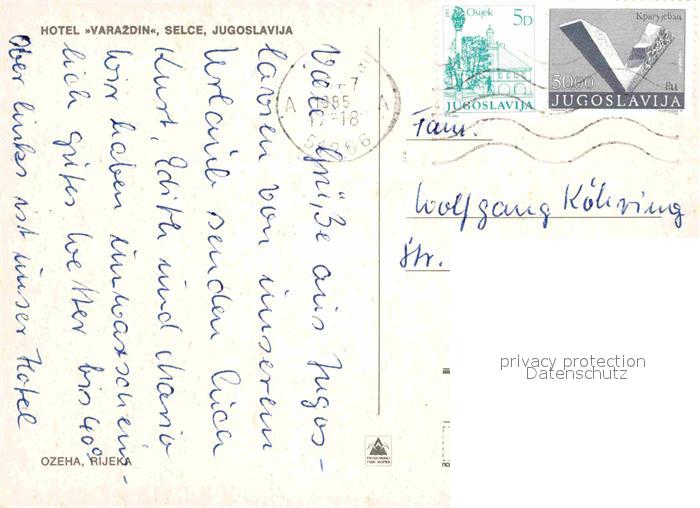 HOTEL »VARAŽDIN«, SELCE, JUGOSLAVIJA
Viele Grüße aus Jugos-
lavien von unserem
Urlaub senden Euch
Kurt, Edith und Mario
Wir haben unwarschein-
lich gutes Wetter bis 40°
Ober links ist unser Hotel
OZEHA, RIJEKA
7
1985
-18
A A
51266
Osijek
5D
JUGOSLAVIJA
Крагујевац
50.00
JUGOSLAVIJA
Fam.
Wolfgang Köhring
Str.
privacy protection
Datenschutz